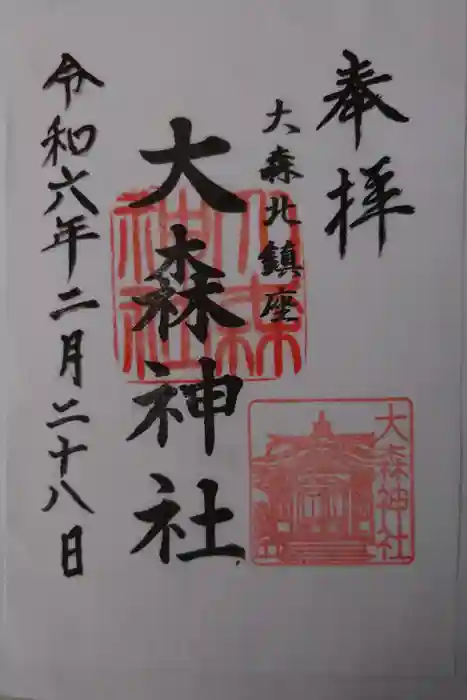 奉拝
大森北鎮座
大森神社
大森神社
大森神社
令和六年二月二十八日